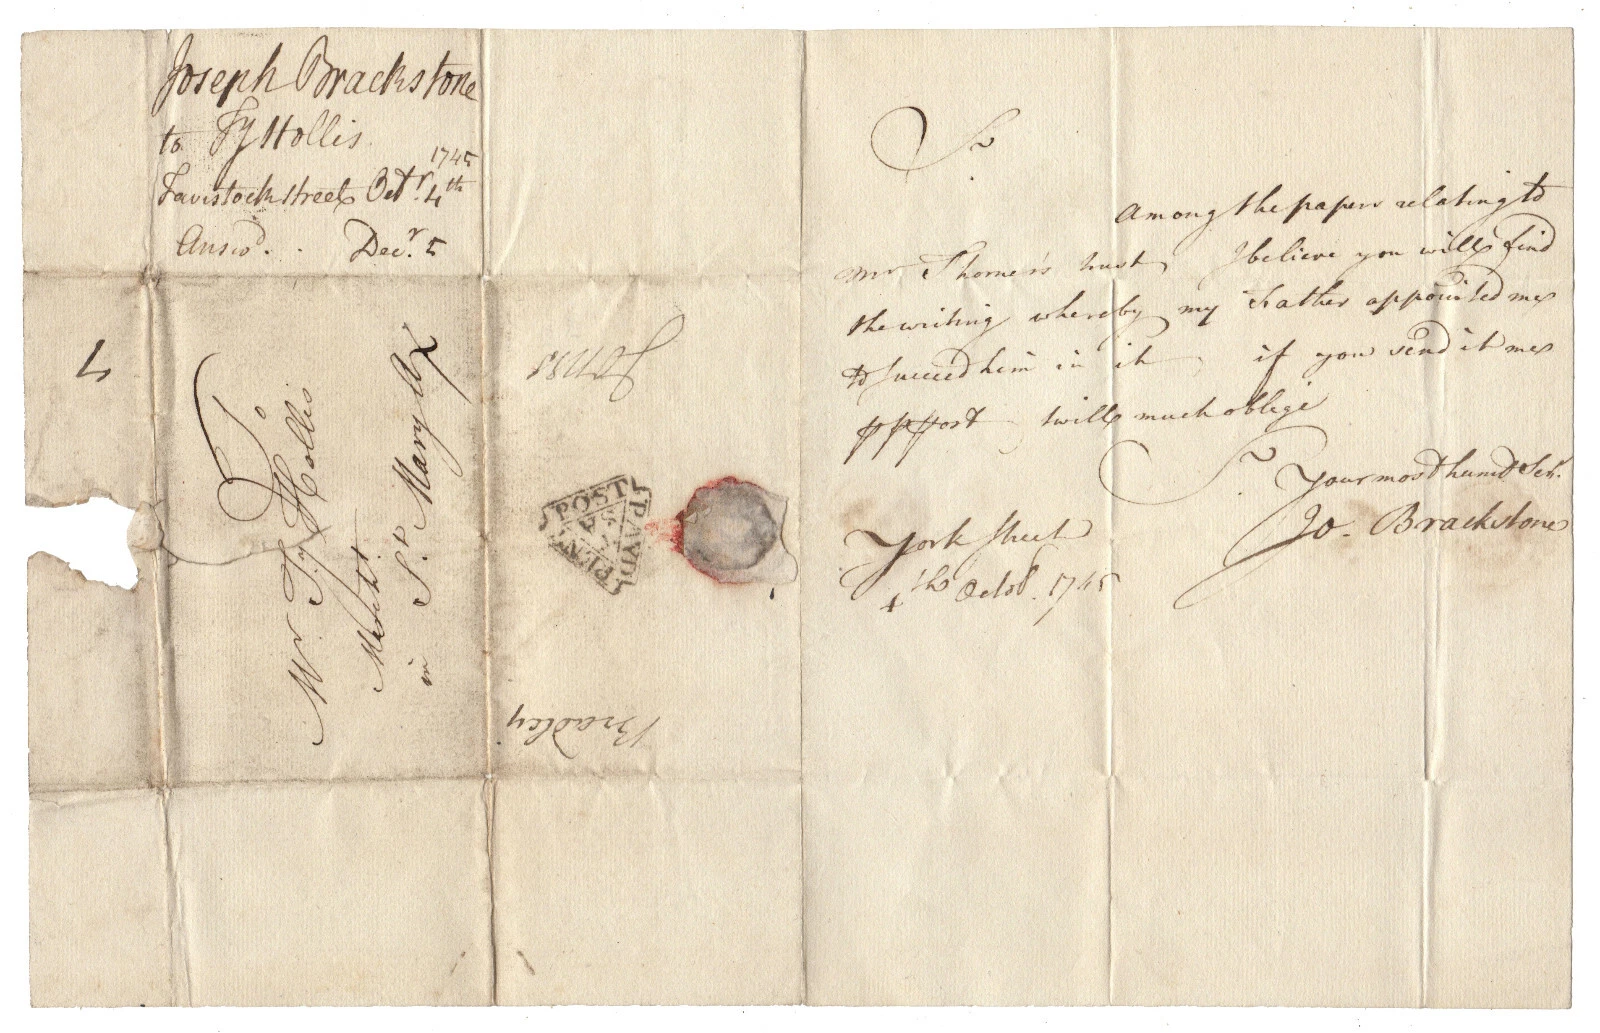 Joseph Brackstone
to Ty Hollis
1745
Tavistock street Octr. 4th
Answd. . Decr. 5
4
To
Mr Ty Hollis
Mercht.
in St Mary Ax
James
Bradley
POST
PAYD
PENY
Sr
Among the papers relating to
Mr Thorner's trust, I believe you will find
the writing whereby my Father appointed me
to succeed him in it, if you send it me
p post twill much oblige
Sr. Your most humb Servt.
Jo. Brackstone
York Street
4th Octobr. 1745